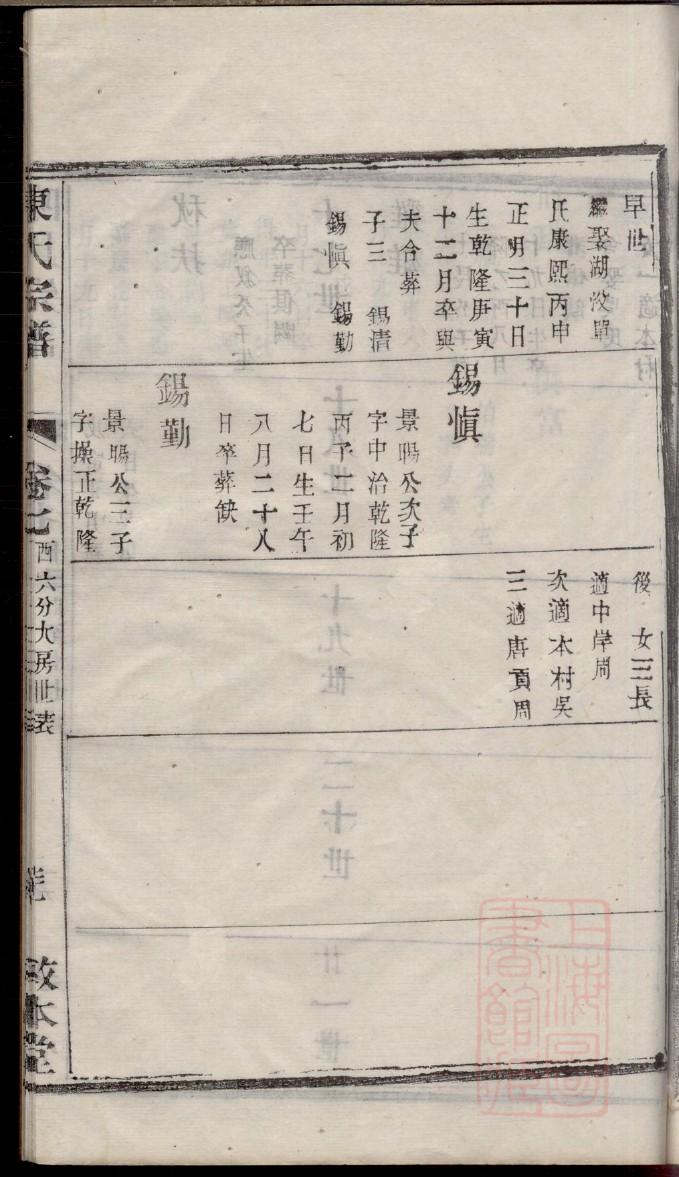 早世
繼娶湖汊單
氏康熙丙申
正月三十日
生乾隆庚寅
十二月卒與
夫合葬
子三 錫清
錫愼 錫勤
錫愼
景暘公次子
字中治乾隆
丙子二月初
七日生壬午
八月二十八
日卒葬缺
錫勤
景暘公三子
字操正乾隆
後 女三長
適中岸周
次適本村吳
三適唐頁周
陳氏宗譜
卷七
西六分大房世表
敦本堂
上海圖
書館藏